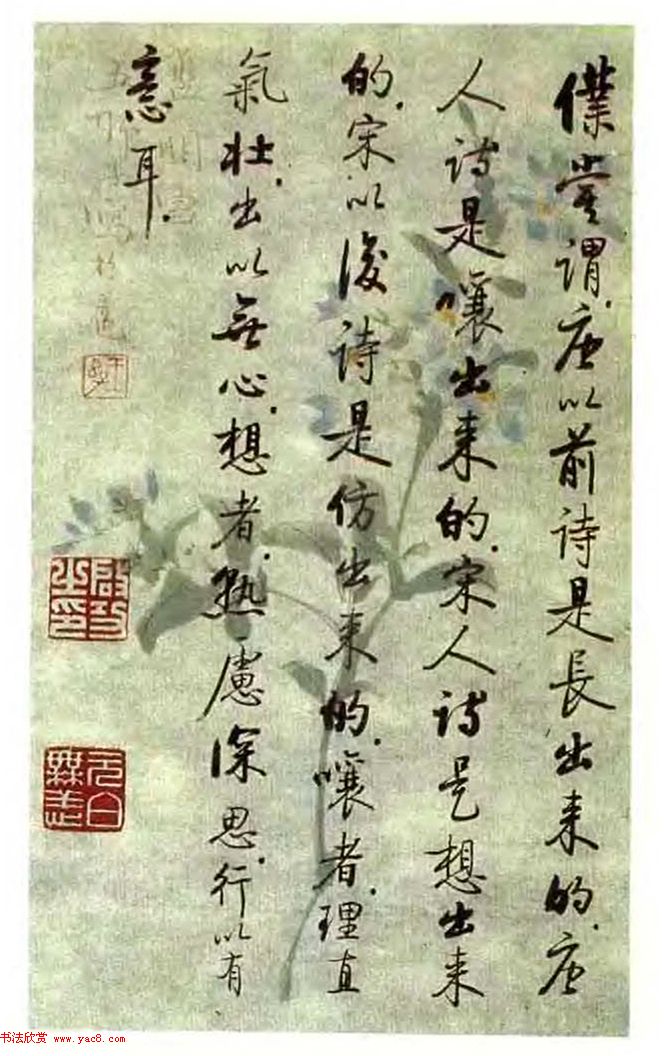 僕嘗謂，唐以前詩是長出來的，唐
人詩是嚷出來的，宋人詩是想出來
的，宋以後詩是仿出來的。嚷者，理直
氣壯，出以無心，想者，熟慮深思，行以有
意耳。
啟功之印
元白無恙
书法欣赏 www.yac8.com